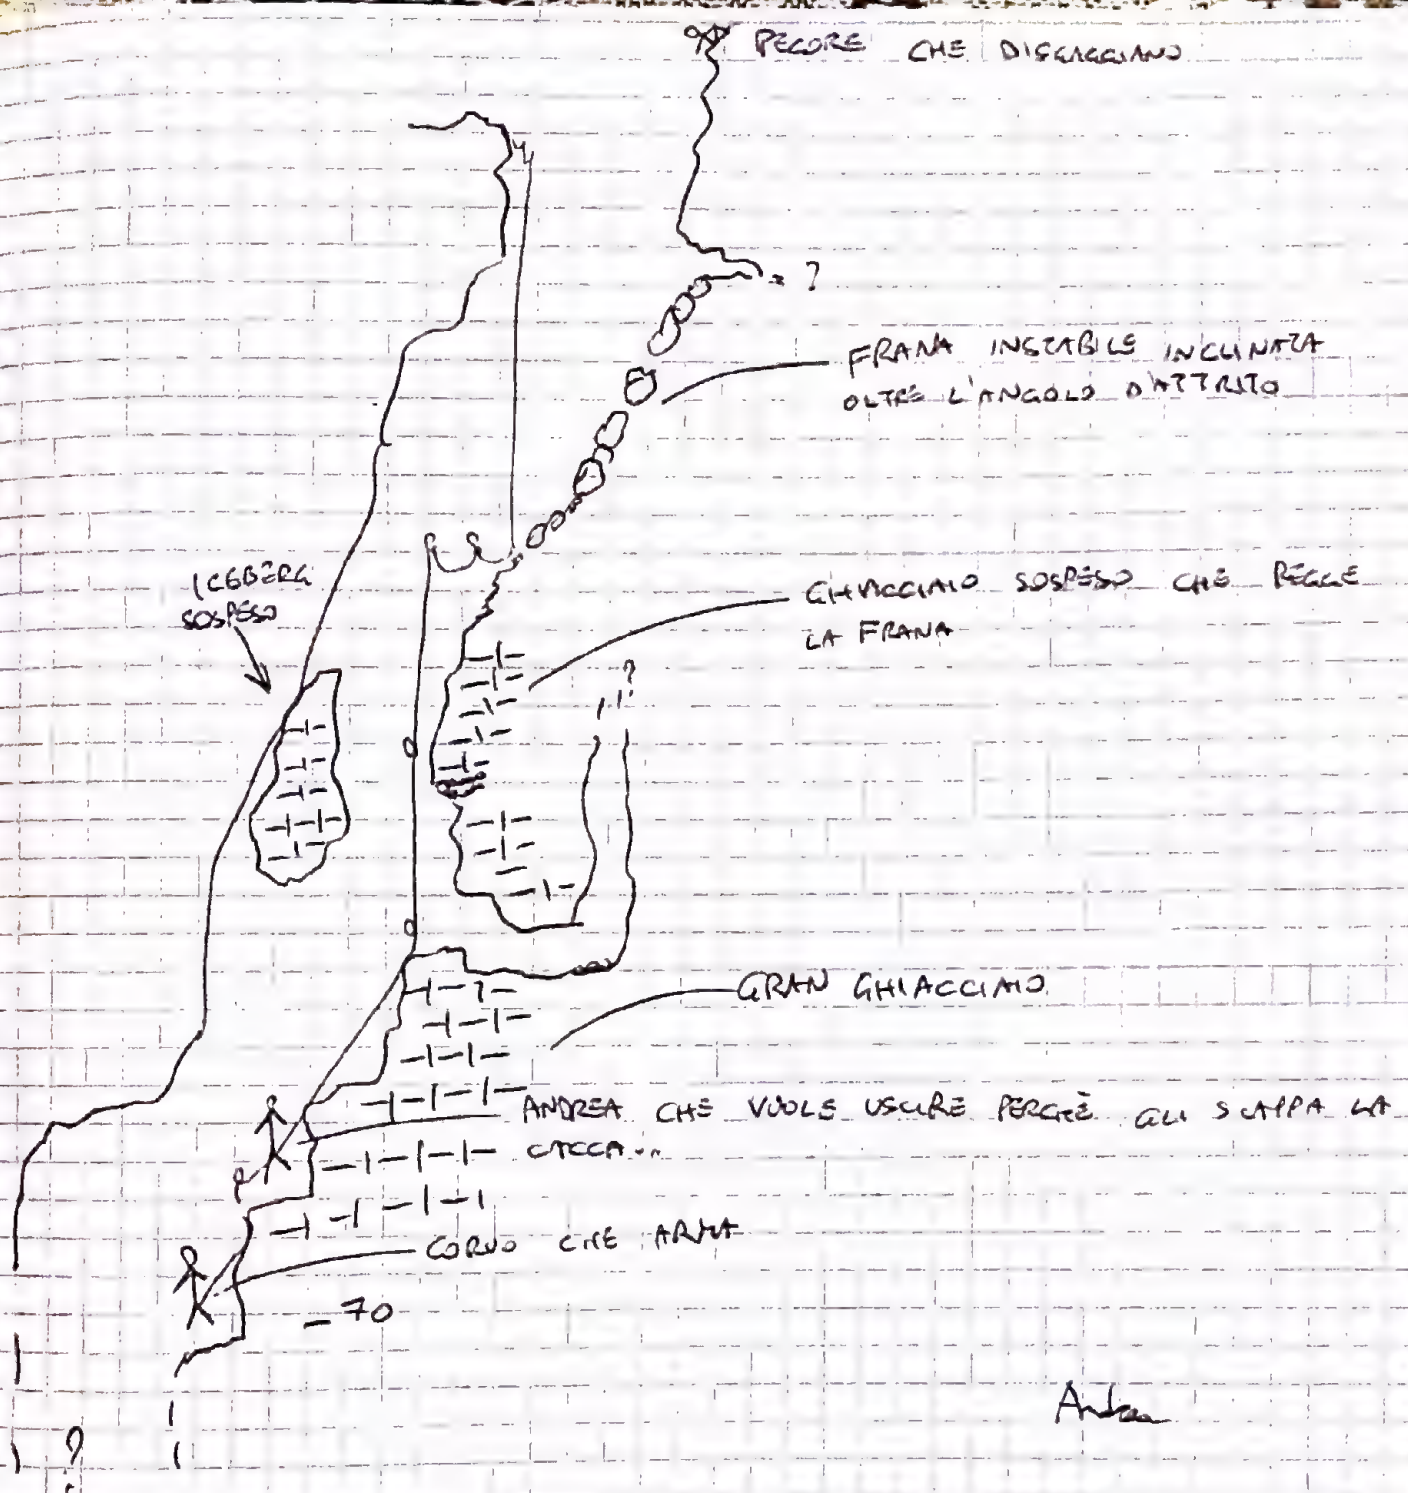 PECORE CHE DISGAGGIANO
?
FRANA INSTABILE INCLINATA
OLTRE L'ANGOLO D'ATTRITO
ICEBERG
SOSPESO
GHIACCIAIO SOSPESO CHE REGGE
LA FRANA
?
GRAN GHIACCIAIO
ANDREA CHE VUOLE USCIRE PERCHÈ GLI SCAPPA LA
CACCA...
CORVO CHE ARMA
-70
Andrea
?